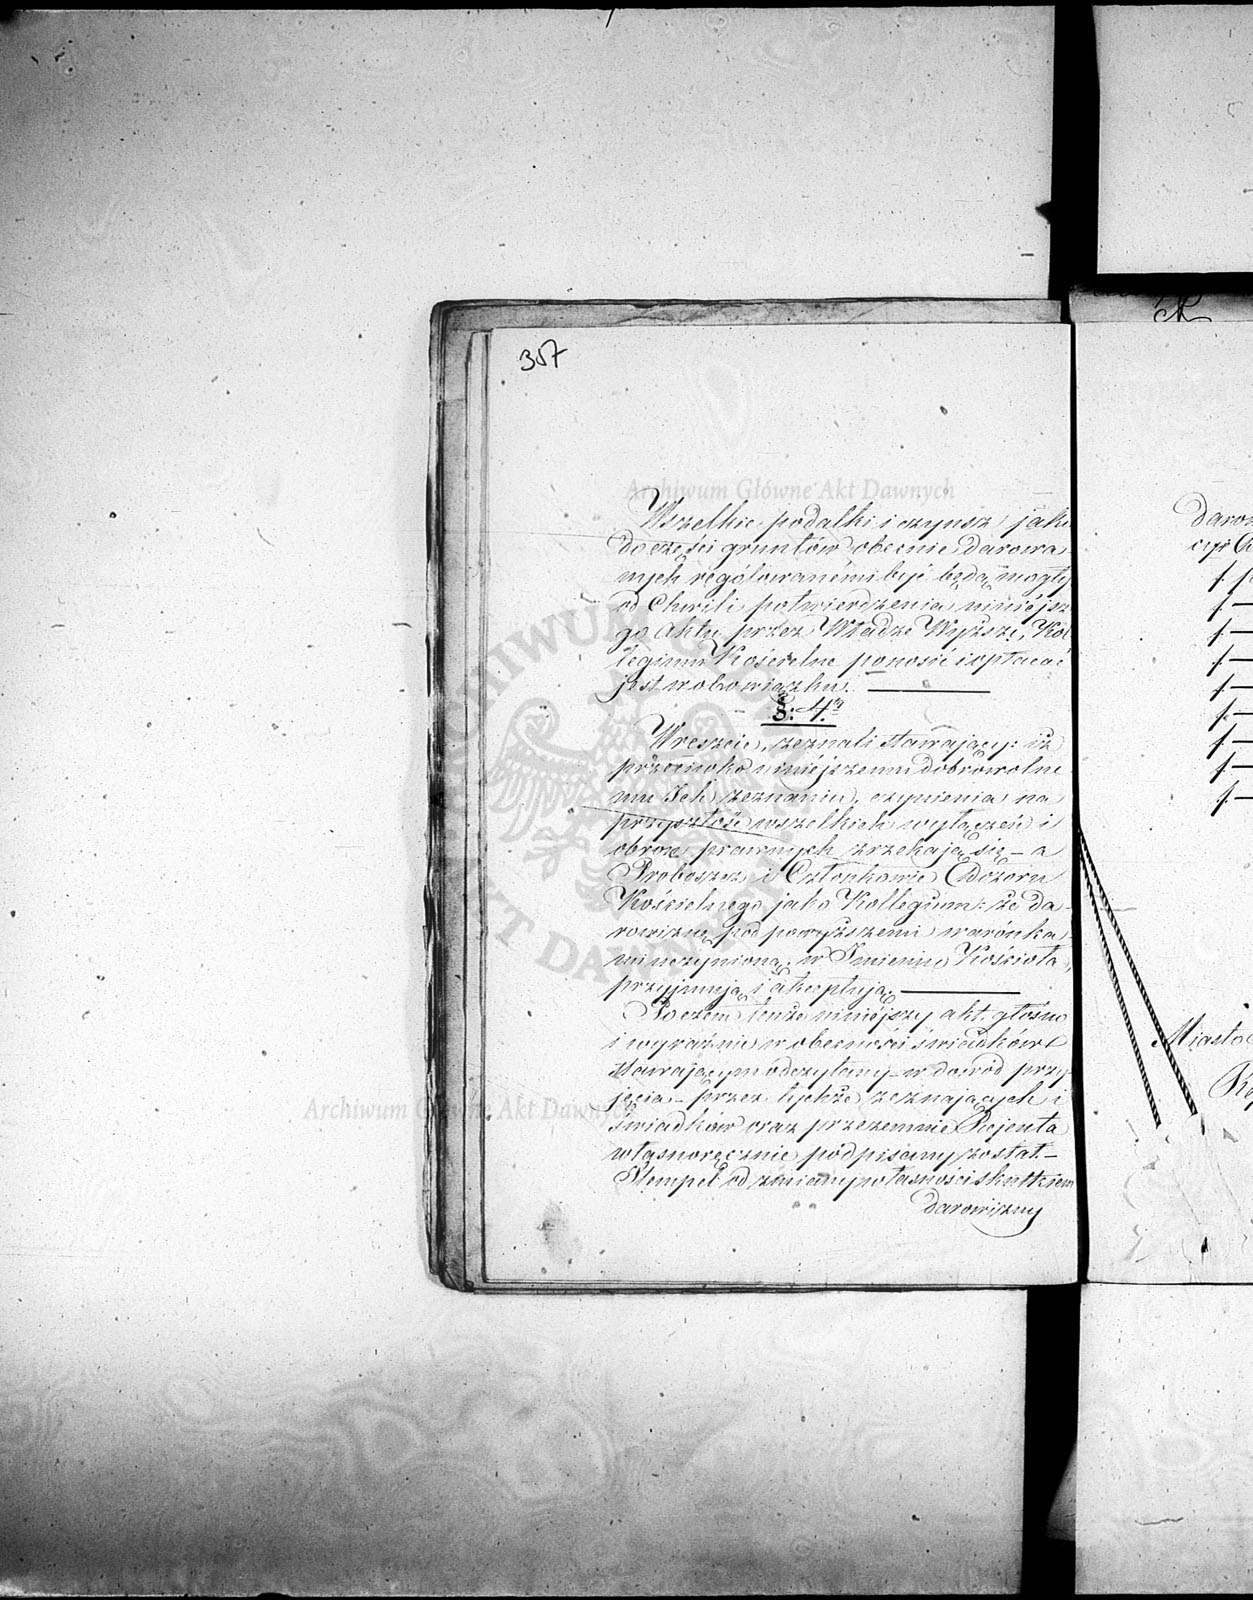 307
Archiwum Główne Akt Dawnych
Wszelkie podatki i czynsz jakie
do części gruntów obecnie darowa-
nych rególowanémi być będą mogły
od Chwili potwierdzenia niniéjsze
go Aktu przez Władze Wyższe, Kol
legium Kościelne ponosić i opłacać
jest w obowiązku.
§: 4ty
Wreszcie, zeznali stawający: iż
przeciwko niniéjszemu dobrowolne
mu Ich zeznaniu, czynienia na
przyszłość wszelkich wyłączeń i
obron prawnych zrzekają się – a
Proboszcz i Członkowie Dozoru
Kościelnego jako Kollegium: że da-
rowiznę pod powyższemi warónka-
mi uczynioną, w Imieniu Kościoła,
przyjmują i akceptują.
Poczém tenże niniéjszy akt głośno
i wyraźnie w obecności świadków
stawającym odczytany – w dowód przy-
jęcia – przez tychże zeznających i
świadków oraz przezemnie Rejenta
własnoręcznie podpisany został. –
Stempel od zmiany własności skutkiem
darowizny
Archiwum Główne Akt Dawnych
ARCHIWUM GŁÓWNE AKT DAWNYCH
daro
czyś
Miasto